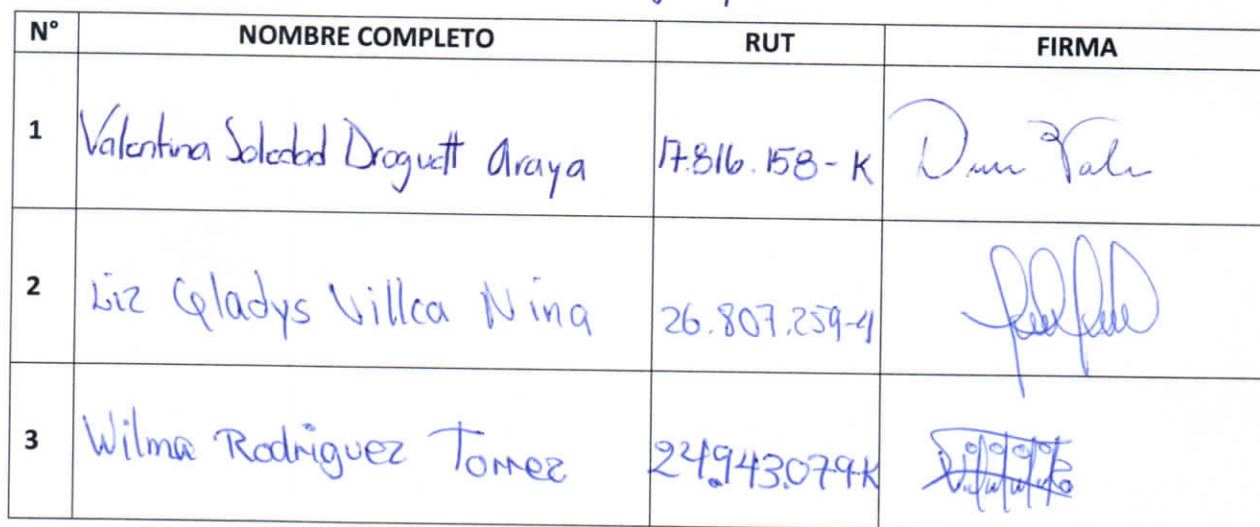 N° NOMBRE COMPLETO RUT FIRMA
1 Valentina Soledad Droguett Araya 17.816.158-K
2 Liz Gladys Villca Nina 26.807.259-4
3 Wilma Rodriguez Torrez 24.943.079-K